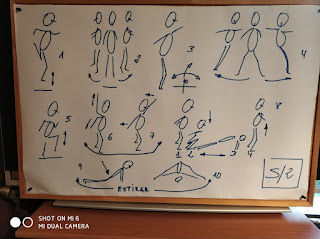 1 2 3 4
5 6 7 8
1 2 3 4
9 ESTIRAR 10
S/2
SHOT ON MI 6
MI DUAL CAMERA